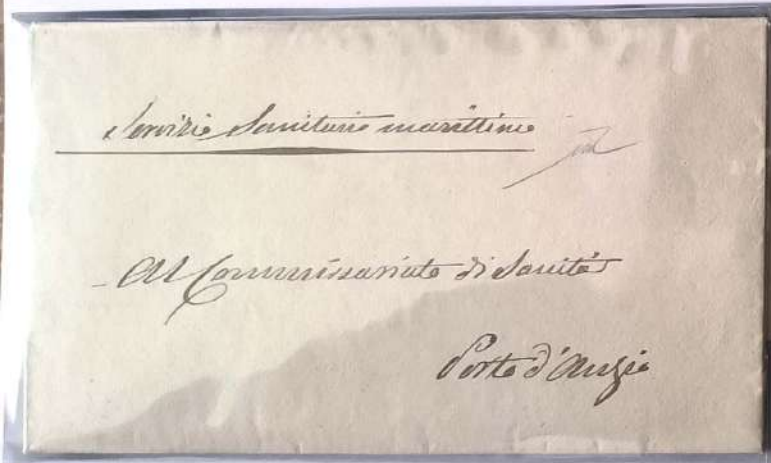 Servizio Sanitario marittimo
Al Commissariato di Sanità
Porto d'Anzio